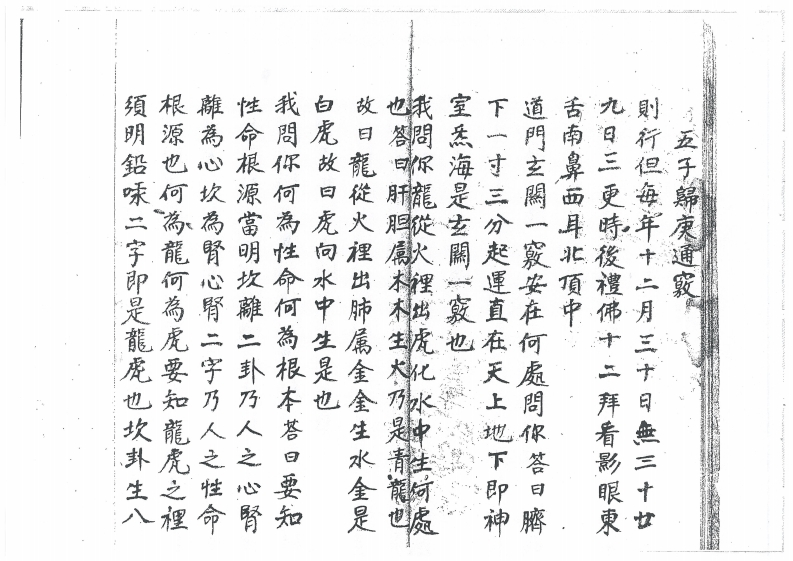 五子歸庚通竅
則行但每年十二月三十日無三十廿
九日三更時後禮佛十二拜看影眼東
舌南鼻西耳北頂中
道門玄關一竅安在何處問你答曰臍
下一寸三分起運直在天上地下即神
室炁海是玄關一竅也
我問你龍從火裡出虎化水中生何處
也答曰肝胆属木木生火乃是青龍也
故曰龍從火裡出肺属金金生水金是
白虎故曰虎向水中生是也
我問你何為性命何為根本答曰要知
性命根源當明坎離二卦乃人之心腎
離為心坎為腎心腎二字乃人之性命
根源也何為龍何為虎要知龍虎之裡
須明鉛汞二字即是龍虎也坎卦生八